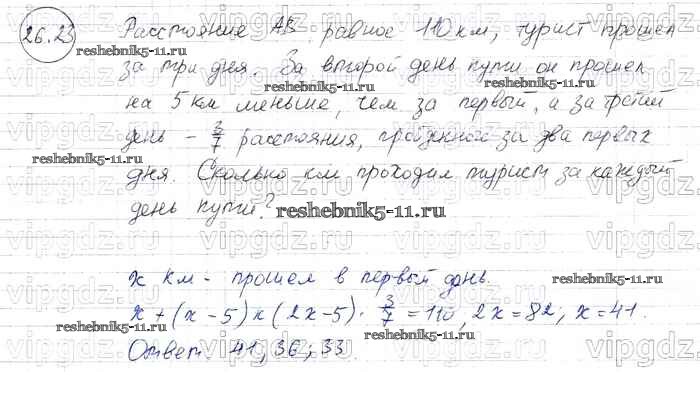 26.23 Расстояние АВ, равное 110 км, турист прошел
за три дня. За второй день пути он прошел
на 5 км меньше, чем за первый, а за третий
день – 3/7 расстояния, пройденной за два первых
дня. Сколько км проходил турист за каждый
день пути?
х км - прошел в первый день.
х + (х - 5) + (2х - 5) · 3/7 = 110, 2х = 82, х = 41.
Ответ: 41; 36; 33.
reshebnik5-11.ru
reshebnik5-11.ru
reshebnik5-11.ru
reshebnik5-11.ru
reshebnik5-11.ru
reshebnik5-11.ru
vipgdz.com